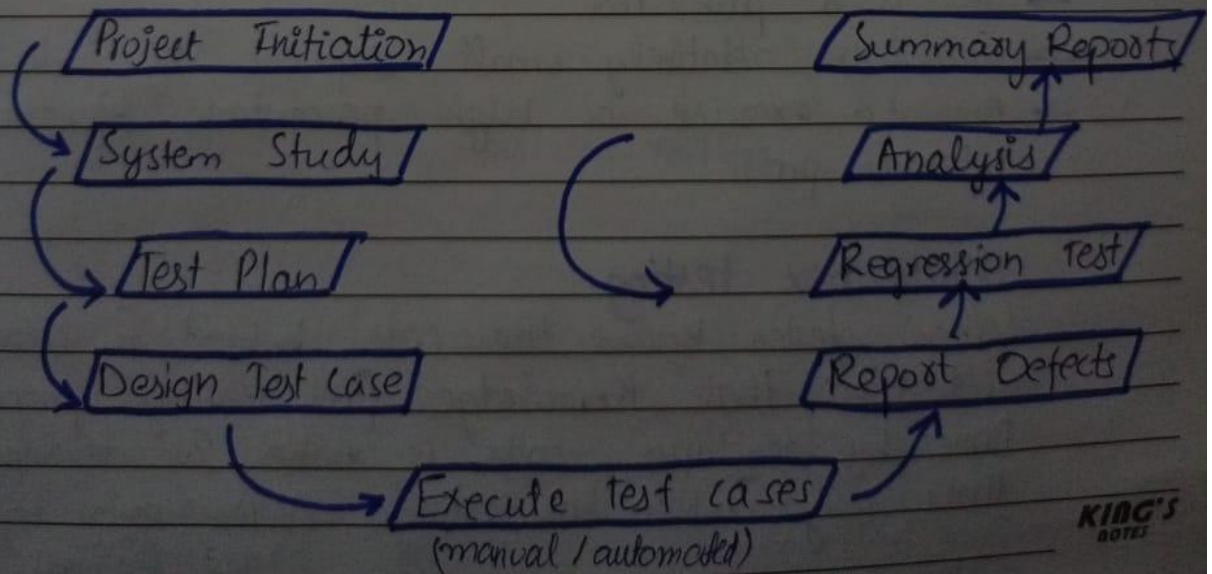 Project Initiation
System Study
Test Plan
Design Test Case
Execute test cases
(manual / automated)
Report Defects
Regression Test
Analysis
Summary Reports
KING'S
NOTES